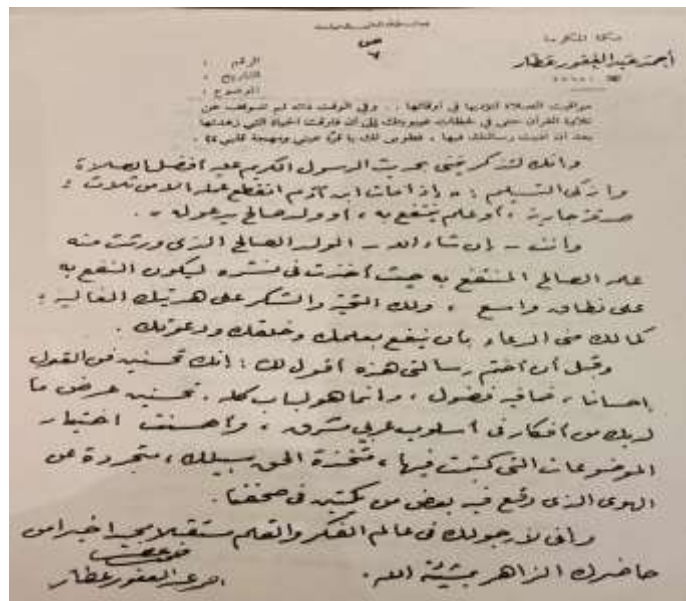 ص
٦
مكة المكرمة
أحمد عبد الغفور عطار
الرقم :
التاريخ :
الموضوع :
مواقيت الصلاة لتؤديها في أوقاتها .. وفي الوقت ذاته لم تتوقف عن
تلاوة القرآن حتى في لحظات غيبوبتك إلى أن فارقت الحياة التي زهدتها
بعد أن أديت رسالتك فيها ، فطوبى لك يا قرة عيني ومهجة قلبي
وانك لتذكرينني بحديث الرسول الكريم عليه أفضل الصلاة
وأزكى التسليم : « إذا مات ابن آدم انقطع عمله إلا من ثلاث :
صدقة جارية ، أو علم ينتفع به ، أو ولد صالح يدعو له » .
وأنت - إن شاء الله - الولد الصالح الذي ورثت منه
علمه الصالح المنتفع به حيث أخذت في نشره ليكون النفع به
على نطاق واسع ، ولك التحية والشكر على هديتك الغالية ،
كما لك مني الدعاء بأن ينفع بعلمك وخلقك ودعوتك .
وقبل أن أختم رسالتي هذه أقول لك : إنك تحسنين فن القول
إحسانا ، فما فيه فضول ، وانما هو لباب كله . تحسنين عرض ما
لديك من أفكار في أسلوب عربي مشرق ، وأحسنت اختيار
الموضوعات التي كتبت فيها ، متخذة الحق سبيلك ، متجردة عن
الهوى الذي وقع فيه بعض من يكتبن في صحفنا .
واني لأرجو لك في عالم الفكر والقلم مستقبلا مجيدا خيرا من
حاضرك الزاهر بمشيئة الله .
أحمد عبد الغفور عطار